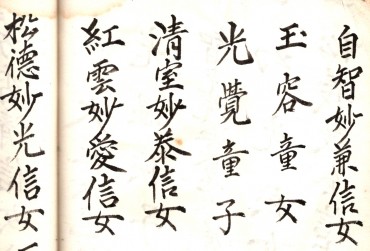 自智妙兼信女
玉容童女
光覺童子
清室妙泰信女
紅雲妙愛信女
松德妙光信女